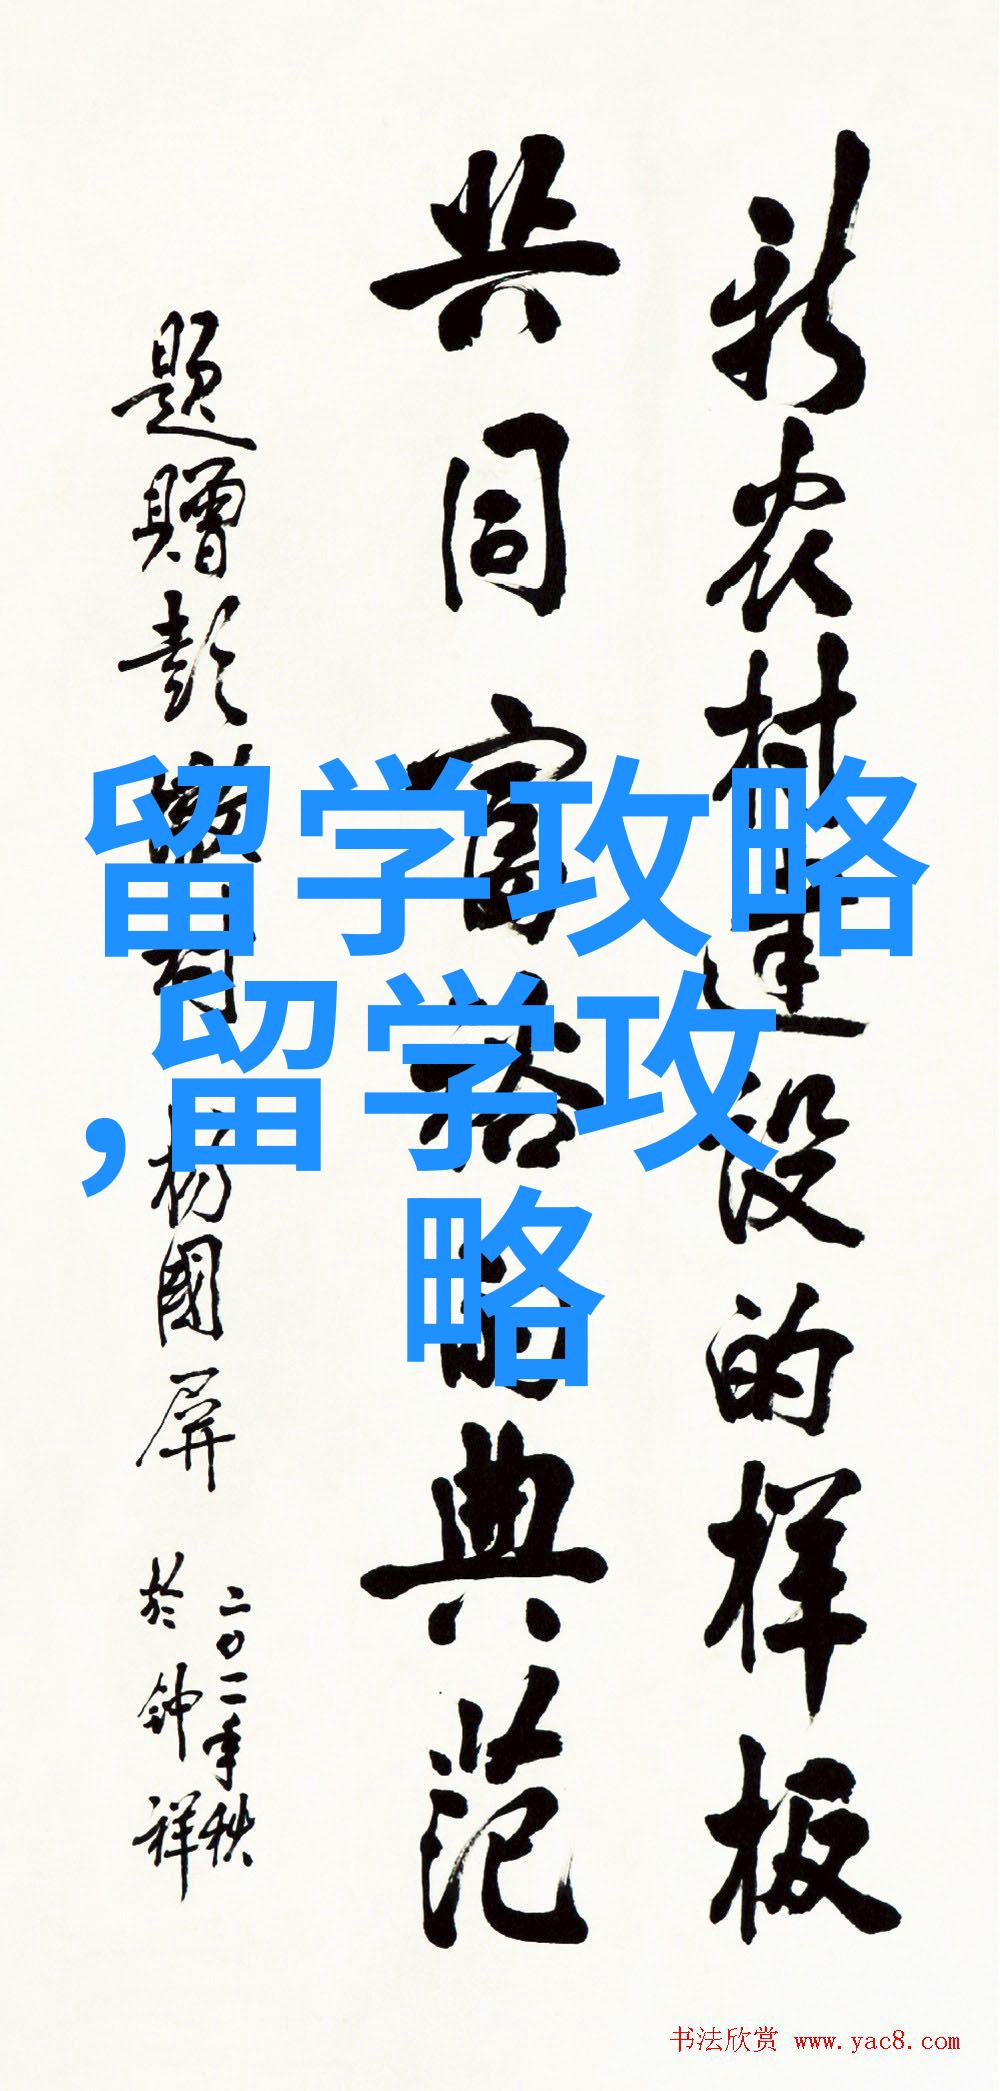 新农村建设的样板
共同富裕的典范
题赠彭墩村 杨国屏
二〇一一年秋
於钟祥
留学攻略
,留学攻
略
书法欣赏 www.yac8.com